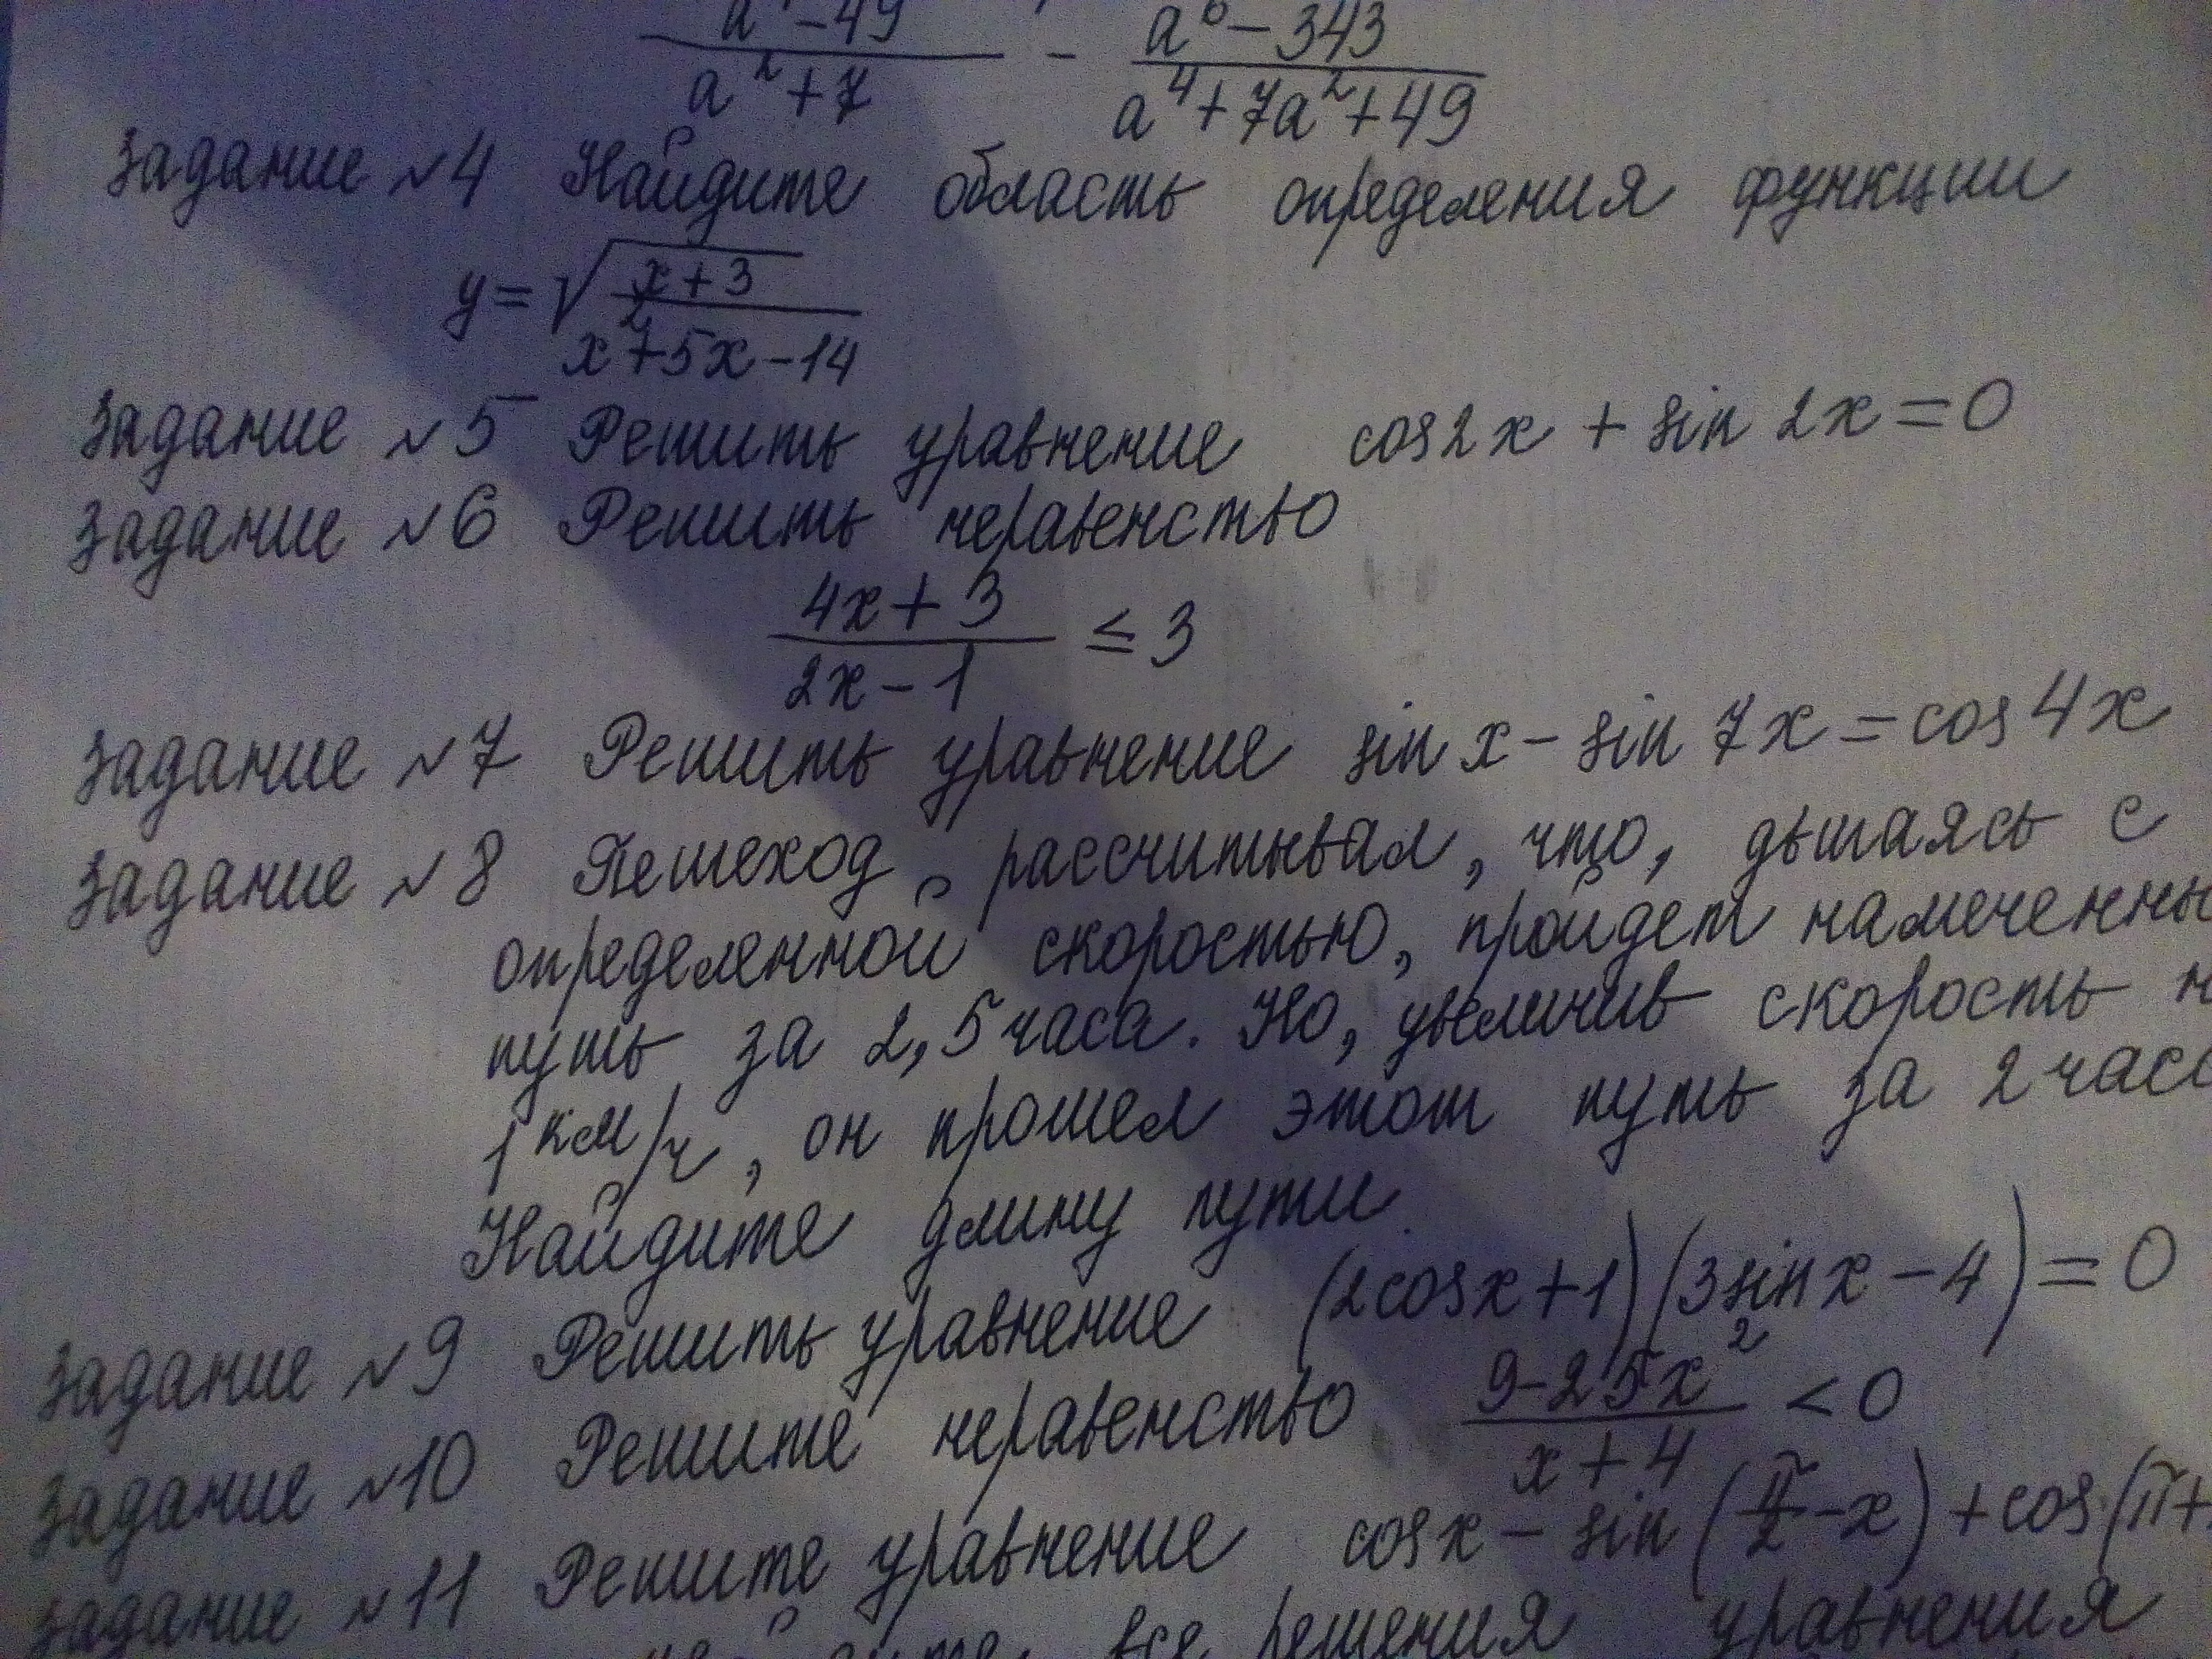 a⁴-49 / a²+7 - a⁶-343 / a⁴+7a²+49
Задание №4 Найдите область определения функции
y=√(x+3 / x²+5x-14)
Задание №5 Решить уравнение cos2x + sin 2x = 0
Задание №6 Решить неравенство
4x+3 / 2x-1 ≤ 3
Задание №7 Решить уравнение sin x - sin 7x = cos 4x
Задание №8 Пешеход рассчитывал, что, двигаясь с
определенной скоростью, пройдет намеченны
путь за 2,5 часа. Но, увеличив скорость н
1 км/ч, он прошел этот путь за 2 часа
Найдите длину пути.
Задание №9 Решить уравнение (2cosx+1)(3sinx-4)=0
Задание №10 Решите неравенство 9-25x² / x+4 < 0
Задание №11 Решите уравнение cosx - sin(π/2 - x) + cos(π+
все решения уравнения